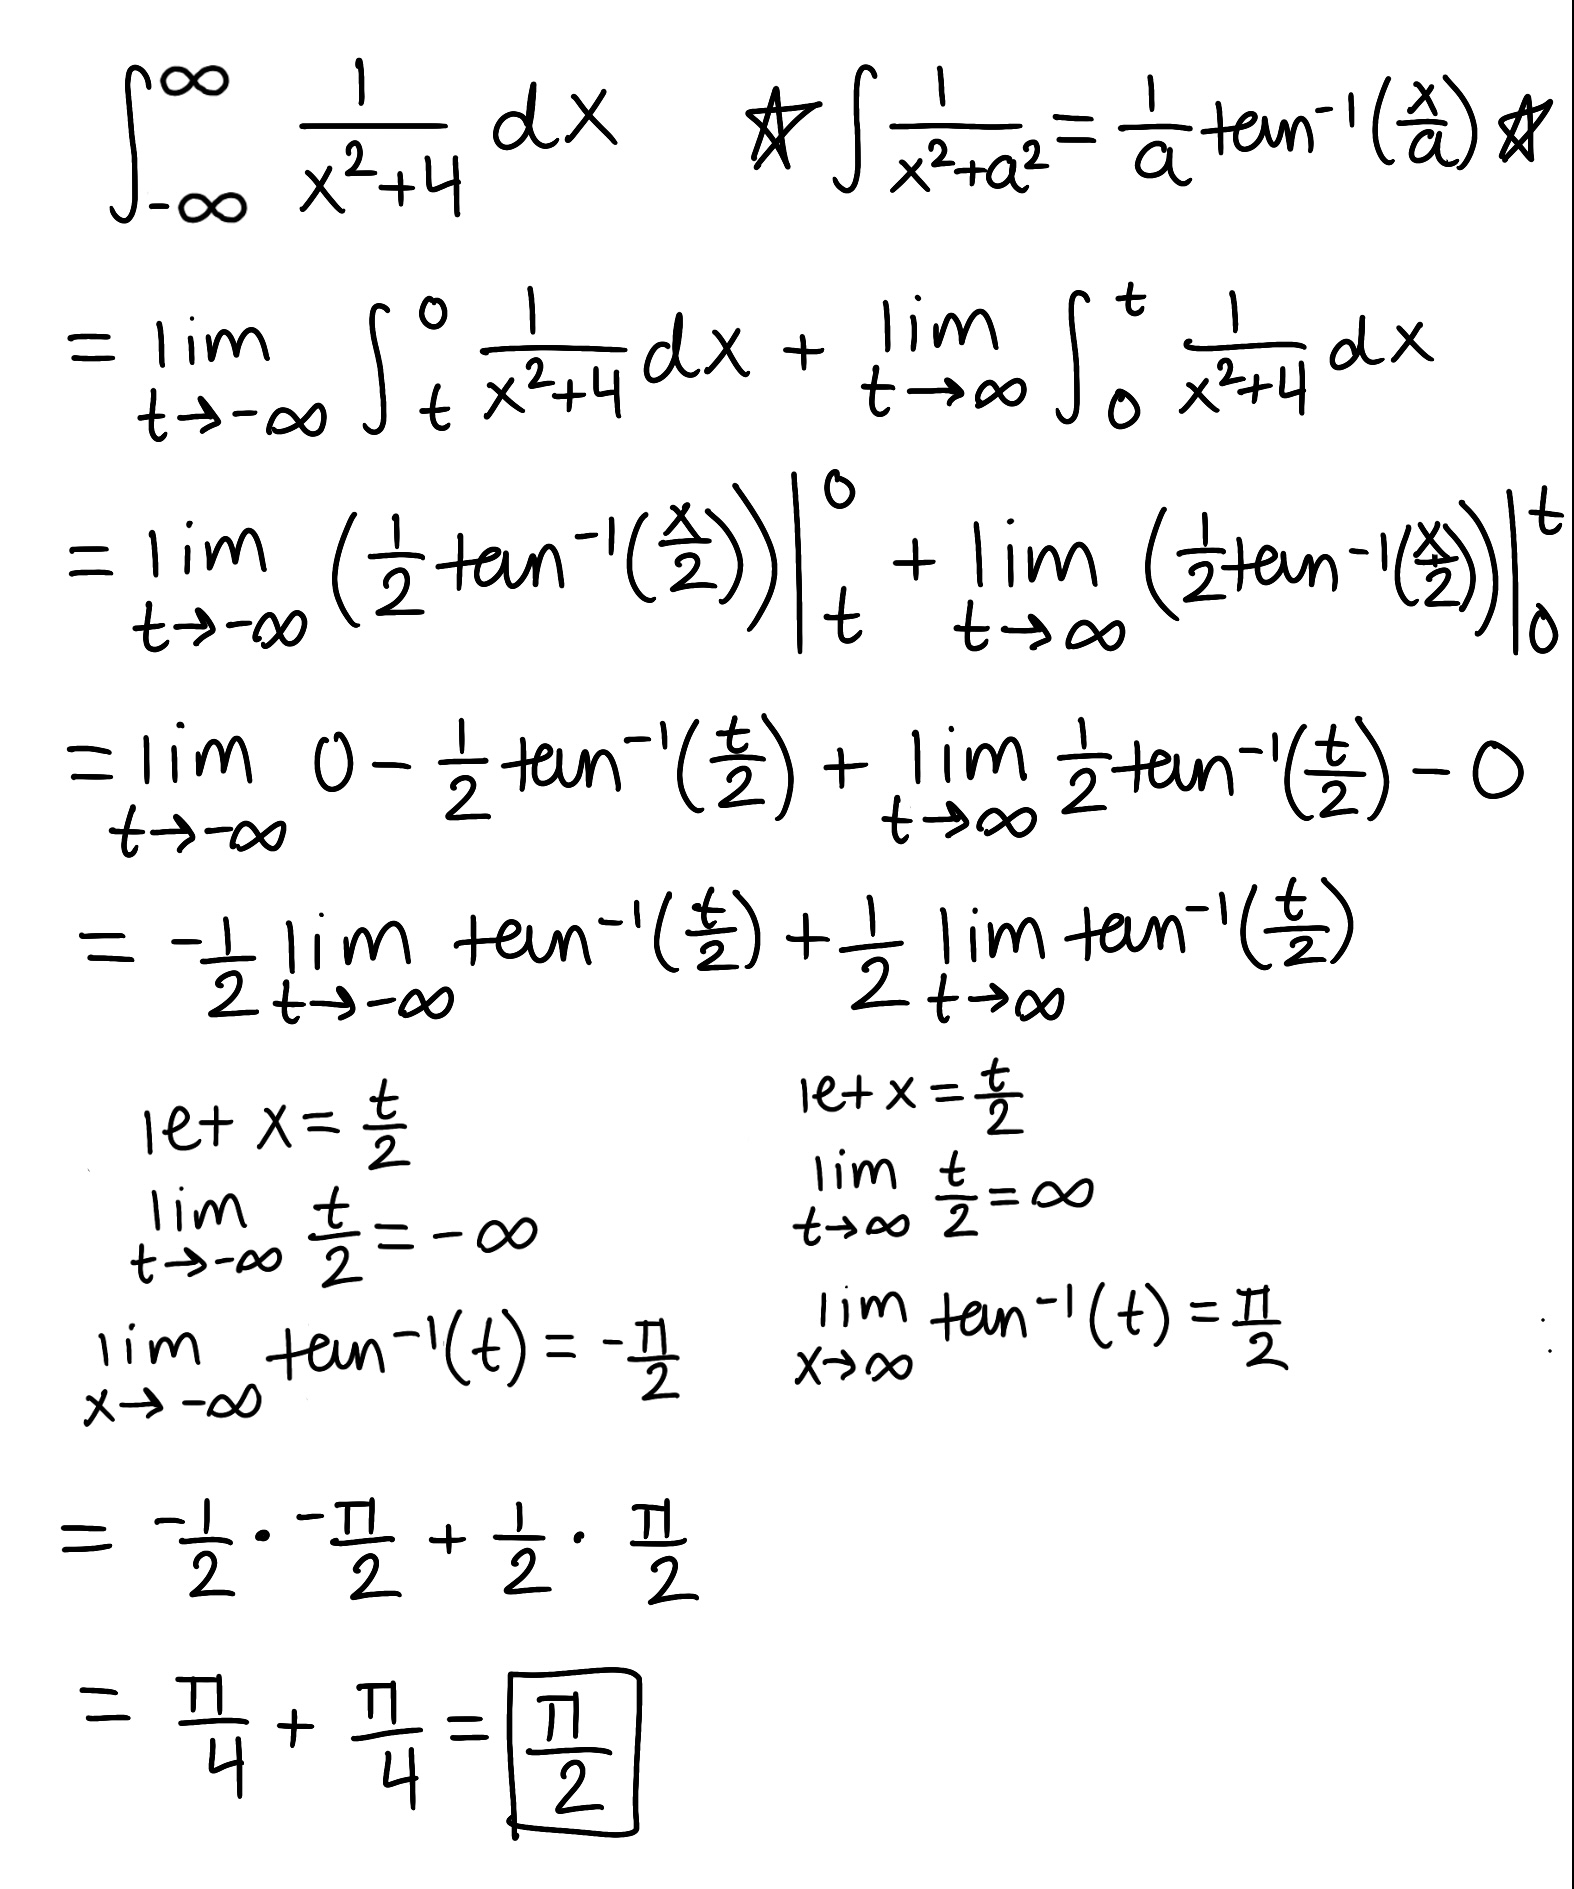 ∫_{-∞}^{∞} 1/(x²+4) dx ☆ ∫ 1/(x²+a²) = 1/a tan⁻¹(x/a) ☆
= lim_{t→-∞} ∫_t^0 1/(x²+4) dx + lim_{t→∞} ∫_0^t 1/(x²+4) dx
= lim_{t→-∞} (1/2 tan⁻¹(x/2)) |_t^0 + lim_{t→∞} (1/2 tan⁻¹(x/2)) |_0^t
= lim_{t→-∞} 0 - 1/2 tan⁻¹(t/2) + lim_{t→∞} 1/2 tan⁻¹(t/2) - 0
= -1/2 lim_{t→-∞} tan⁻¹(t/2) + 1/2 lim_{t→∞} tan⁻¹(t/2)
let x = t/2
lim_{t→-∞} t/2 = -∞
lim_{x→-∞} tan⁻¹(t) = -π/2
let x = t/2
lim_{t→∞} t/2 = ∞
lim_{x→∞} tan⁻¹(t) = π/2
= -1/2 · -π/2 + 1/2 · π/2
= π/4 + π/4 = π/2